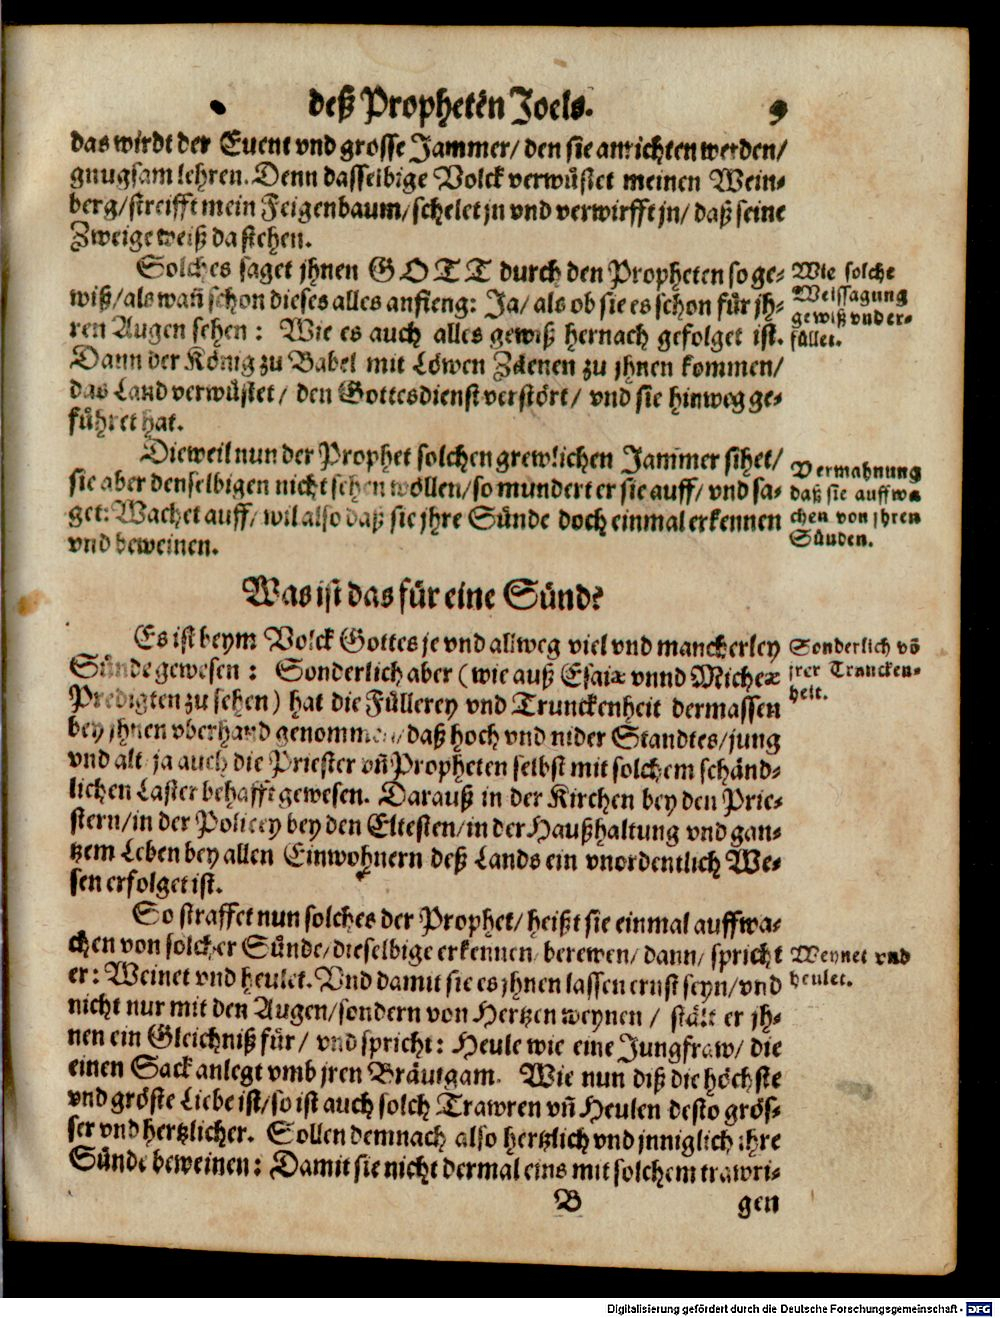 deß Propheten Joels. 9
das wirdt der Event vnd grosse Jammer/ den sie anrichten werden/
gnugsam lehren. Denn dasselbige Volck verwüstet meinen Wein-
berg/ streifft mein Feigenbaum/ schelet jn vnd verwirfft jn/ daß seine
Zweige weiß da stehen.
Solches saget jhnen GOTT durch den Propheten so ge-
wiß/ als wañ schon dieses alles anfieng: Ja/ als ob sie es schon für jh-
ren Augen sehen: Wie es auch alles gewiß hernach gefolget ist.
Dann der König zu Babel mit Löwen Zäenen zu jhnen kommen/
das Land verwüstet/ den Gottesdienst verstört/ vnd sie hinweg ge-
führet hat.
Wie solche
Weissagung
gewiß vnd er-
füllet.
Dieweil nun der Prophet solchen grewlichen Jammer sihet/
sie aber denselbigen nicht sehen wöllen/ so mundert er sie auff/ vnd sa-
get: Wachet auff/ wil also daß sie jhre Sünde doch einmal erkennen
vnd beweinen.
Vermahnung
daß sie auffwa
chen von jhren
Sünden.
Was ist das für eine Sünd?
Es ist beym Volck Gottes je vnd allweg viel vnd mancherley
Sünde gewesen: Sonderlich aber (wie auß Esaiæ vnnd Micheæ
Predigten zu sehen) hat die Füllerey vnd Trunckenheit dermassen
bey jhnen vberhand genommen/ daß hoch vnd nider Standtes/ jung
vnd alt ja auch die Priester vñ Propheten selbst mit solchem schänd-
lichen Laster behafft gewesen. Darauß in der Kirchen bey den Prie-
stern/ in der Policey bey den Eltesten/ in der Haußhaltung vnd gan-
tzem Leben bey allen Einwohnern deß Lands ein vnordentlich We-
sen erfolget ist.
Sonderlich võ
jrer Truncken-
heit.
So straffet nun solches der Prophet/ heißt sie einmal auffwa-
chen von solcher Sünde/ dieselbige erkennen/ berewen/ dann/ spricht
er: Weinet vnd heulet. Vnd damit sie es jhnen lassen ernst seyn/ vnd
nicht nur mit den Augen/ sondern von Hertzen weynen/ stält er jh-
nen ein Gleichniß für/ vnd spricht: Heule wie eine Jungfraw/ die
einen Sack anlegt vmb jren Bräutgam. Wie nun diß die höchste
vnd gröste Liebe ist/ so ist auch solch Trawren vñ Heulen desto grös-
ser vnd hertzlicher. Sollen demnach also hertzlich vnd jnniglich jhre
Sünde beweinen: Damit sie nicht dermal eins mit solchem trawri-
Weynet vnd
heulet.
B gen
Digitalisierung gefördert durch die Deutsche Forschungsgemeinschaft - DFG